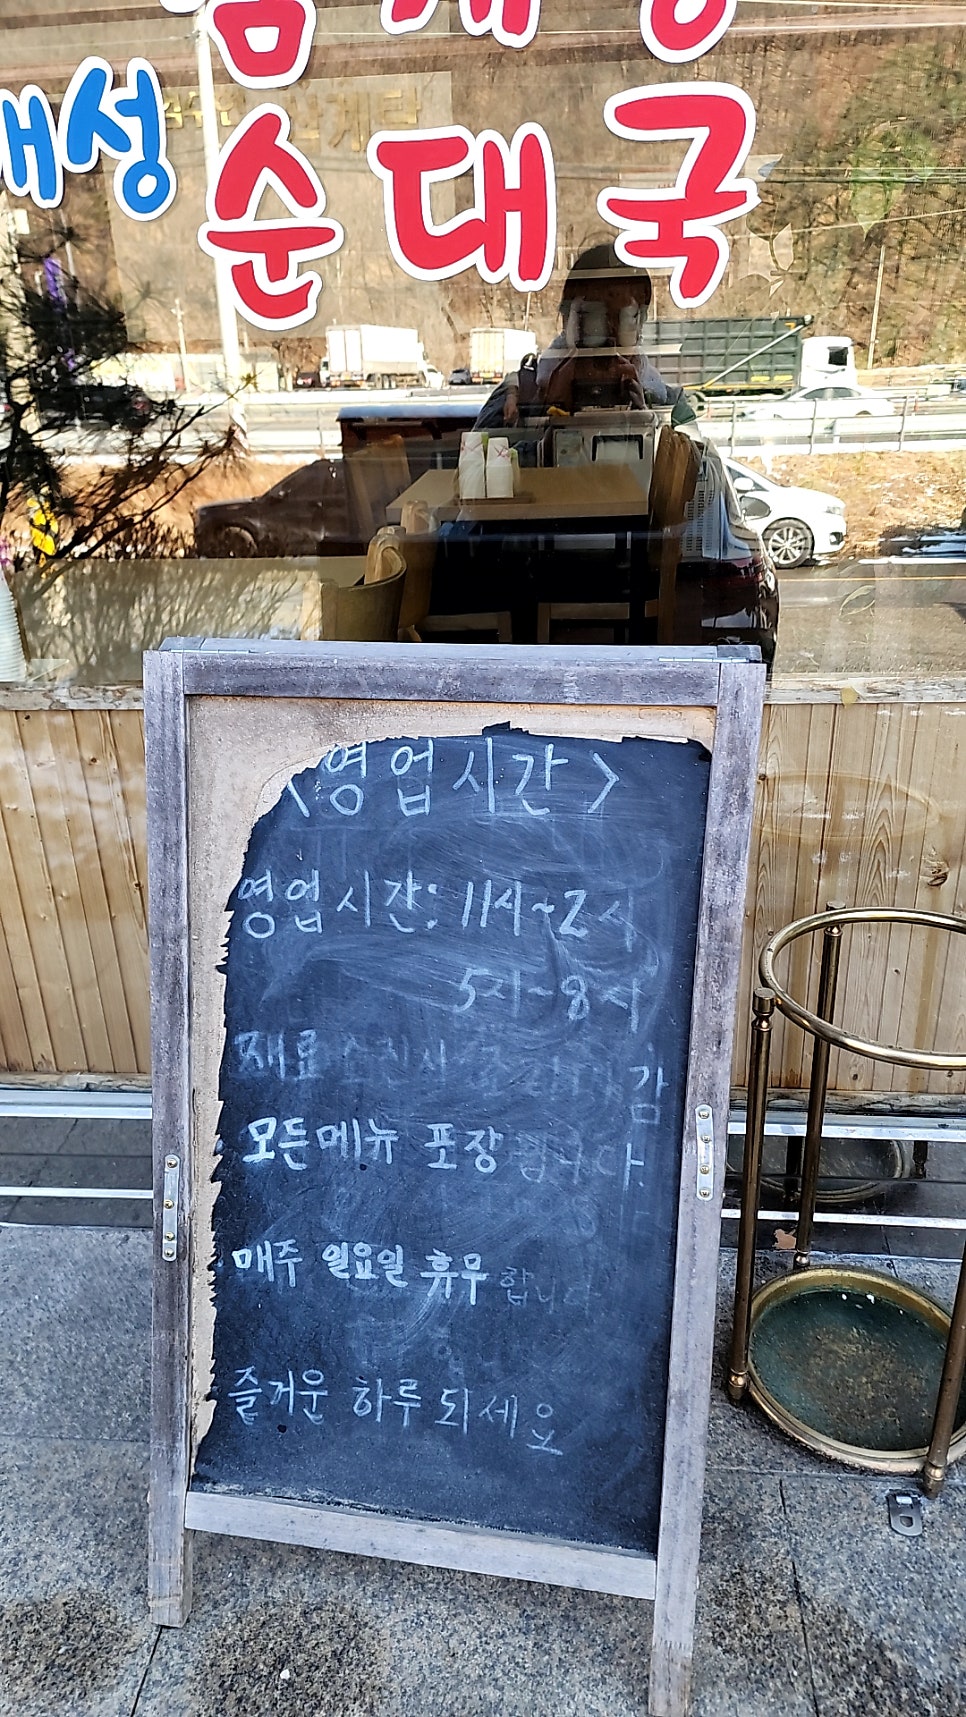 개성
순대국
<영업시간>
영업시간: 11시~2시
5시~8시
재료 소진시
모든메뉴 포장 됩니다.
매주 일요일 휴무 합니다
즐거운 하루 되세요